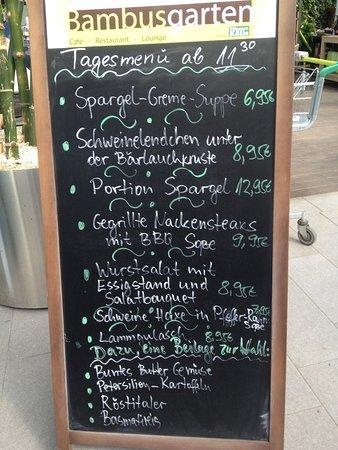 Bambusgarten
Cafe - Restaurant - Lounge
Tagesmenü ab 11 30
Spargel-Creme-Suppe 6,95€
Schweinelendchen unter
der Bärlauchkruste 8,95€
Portion Spargel 12,95€
Gegrillte Nackensteaks
mit BBQ Soße 9,95€
Wurstsalat mit
Essigstand und
Salatbouquet 8,95€
Schweine Haxe in Pfeffer-Rahm
Soße
Lammgulasch 8,95€
Dazu eine Beilage zur Wahl:
Buntes Butter Gemüse
Petersilien-Kartoffeln
Röstitaler
Basmatireis